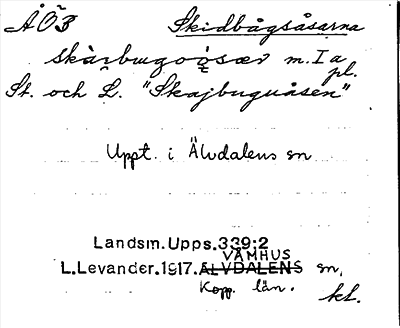 ÅÖ3 Skidbågsåsarna
skàrbugoo̗sær m. I a pl.
St. och L. "Skajbuguåsen"
Uppt. i Älvdalens sn
Landsm. Upps. 339:2
VÅMHUS
L.Levander. 1917. ÄLVDALENS sn,
Kopp. län.